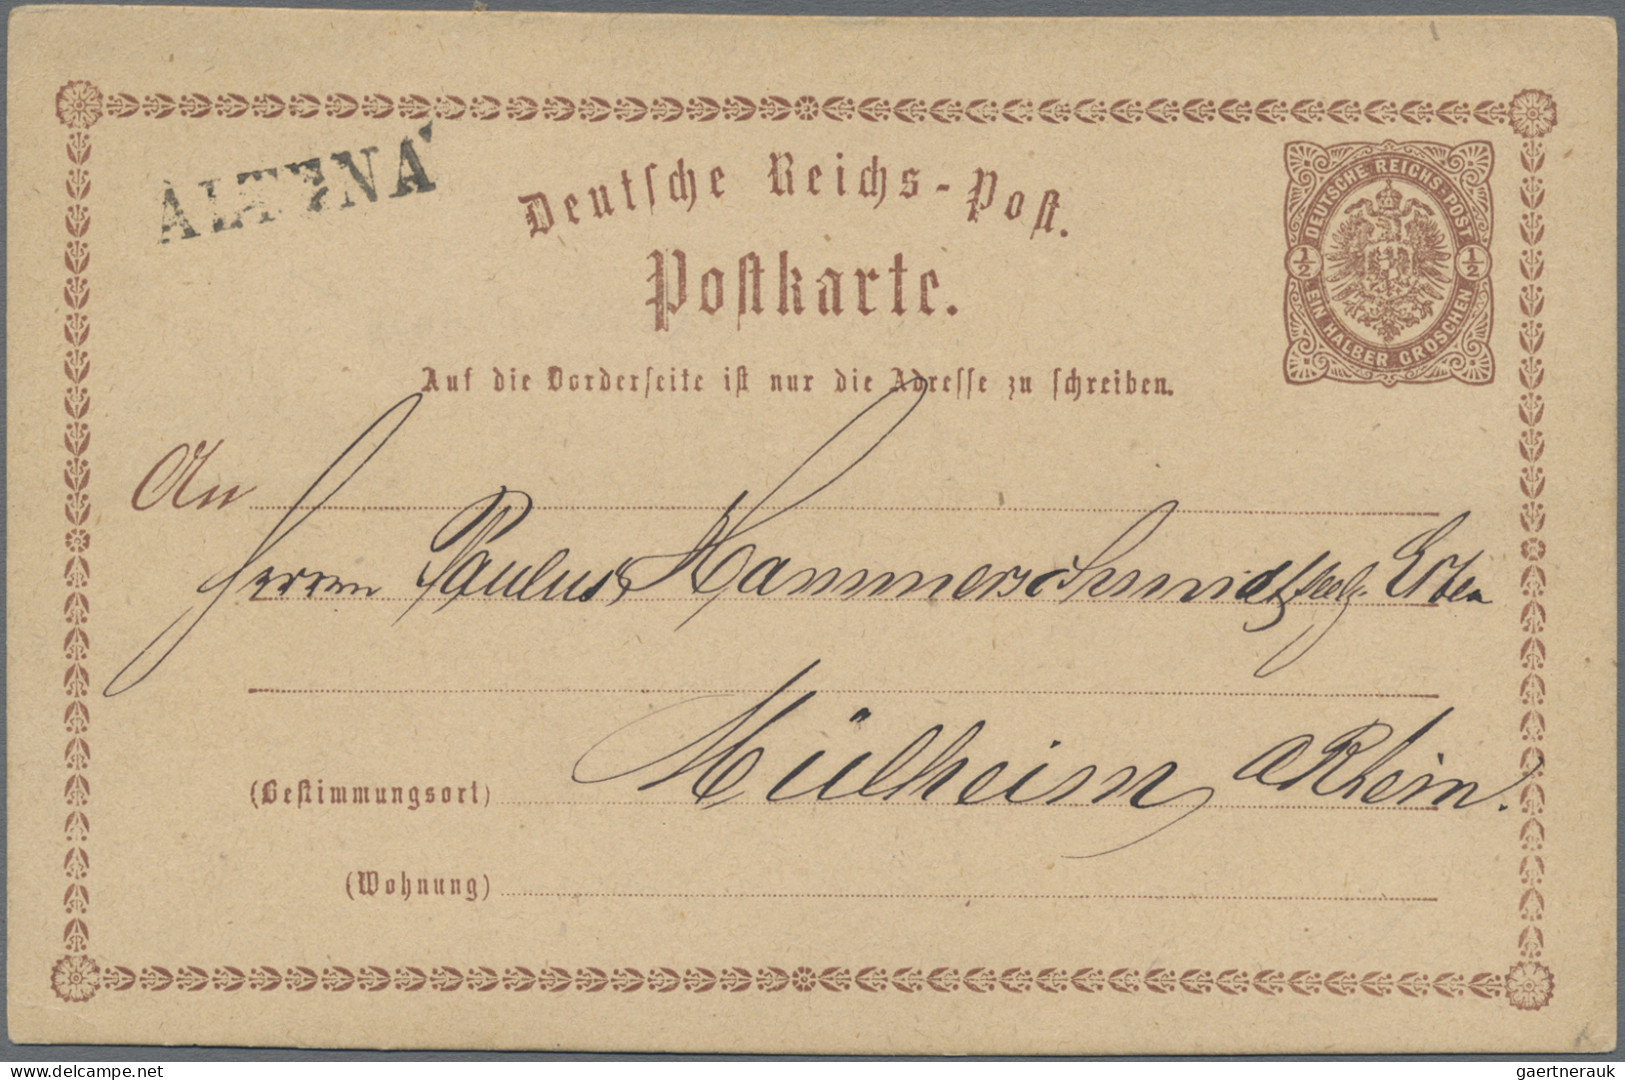 ALTENA
Deutsche Reichs-Post.
DEUTSCHE REICHS-POST
1/2 1/2
EIN HALBER GROSCHEN
Postkarte.
Auf die Vorderseite ist nur die Adresse zu schreiben.
An
Herren Paulus Hammerschmidt seelg. Erben
(Bestimmungsort) Mülheim a Rhein.
(Wohnung)
gaertnerauk